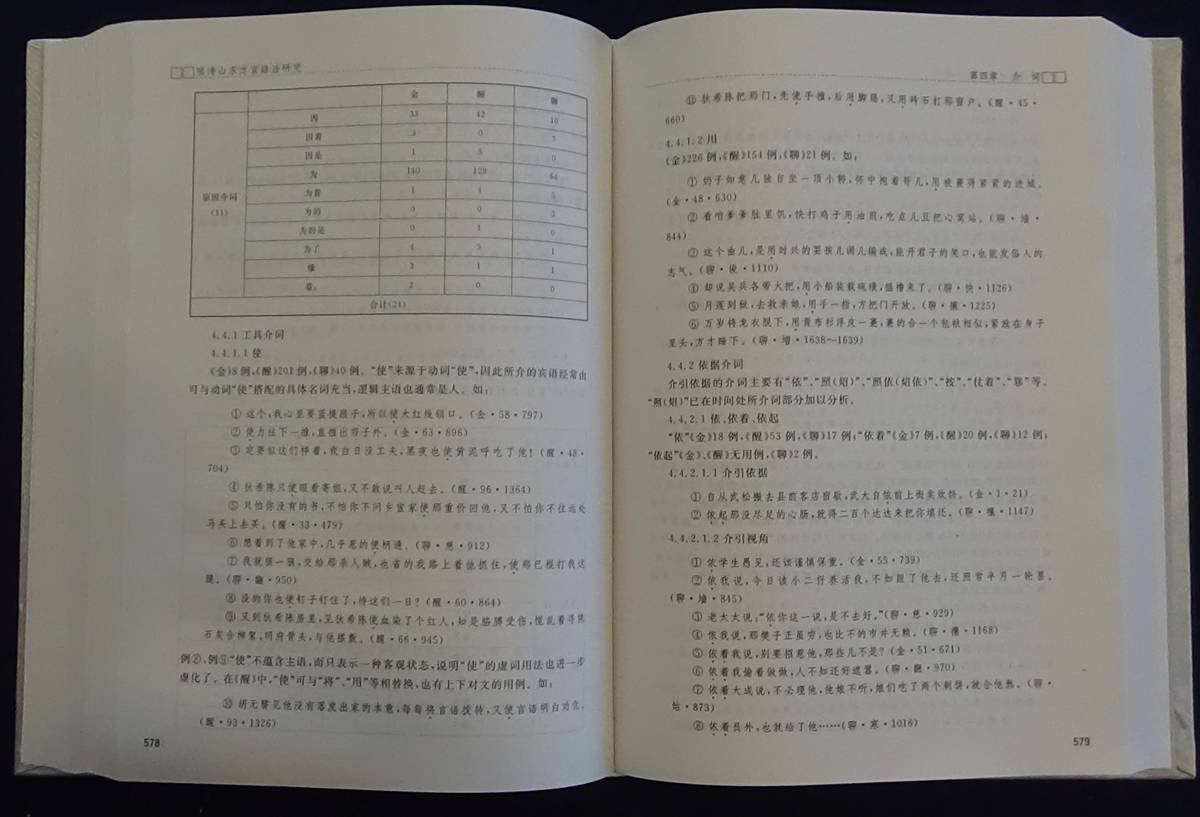 明清山东方言语法研究
金 醒 聊
因 33 42 10
因着 3 0 7
因是 1 5 0
为 140 129 64
原因介词
(11)
为着 1 4 5
为的 0 0 3
为的是 0 1 0
为了 4 5 1
缘 2 1 1
2 0 0
合计(24)
4.4.1 工具介词
4.4.1.1 使
《金》8例,《醒》201例,《聊》40例。“使”来源于动词“使”,因此所介的宾语经常由
可与动词“使”搭配的具体名词充当,逻辑主语也通常是人。如:
① 这个,我心里要蓝提跟子,所以使大红线锁口。(金·58·797)
② 使力往下一推,直推出帘子外。(金·63·896)
③ 定要似这们样着,我白日没工夫,黑夜也使黄泥呼吃了他!(醒·48·
704)
④ 狄希陈只使眼看寄姐,又不敢说叫人赶去。(醒·96·1364)
⑤ 只怕你没有的书,不怕你不问乡宦家使那重价回他,又不怕你不往远处
马头上去买。(醒·33·479)
⑥ 想着到了他家中,几乎惹的使柄通。(聊·慈·912)
⑦ 我就狠一狠,交给那杀人贼,也省的我路上着他抓住,使那巴棍打我这
腿。(聊·翻·950)
⑧ 没的你也使钉子钉住了,待这们一日?(醒·60·864)
⑨ 又到狄希陈房里,见狄希陈使血染了个红人,知是胳膊受伤,慌乱着寻陈
石灰合柳絮、明府骨头,与他搽敷。(醒·66·945)
例⑧、例⑨“使”不蕴含主语,而只表示一种客观状态,说明“使”的虚词用法也进一步
虚化了。在《醒》中,“使”可与“将”、“用”等相替换,也有上下对文的用例。如:
⑩ 胡无翳见他没有落发出家的本意,每每将言语拨转,又使言语明白劝化。
(醒·93·1326)
578
第四章 介 词
⑪ 狄希陈把那门,先使手推,后用脚踢,又用砖石打那窗户。(醒·45·
660)
4.4.1.2 用
《金》226例,《醒》154例,《聊》21例。如:
① 奶子如意儿独自坐一顶小轿,怀中抱着哥儿,用被裹得紧紧的进城。
(金·48·630)
② 看咱爹爹肚里饥,快打鸡子用油煎,吃点儿且把心窝站。(聊·墙·
844)
③ 这个曲儿,是用时兴的耍孩儿调儿编成,能开君子的笑口,也能发俗人的
志气。(聊·俊·1110)
④ 却说吴兵各带火把,用小船装载硫磺,摇橹来了。(聊·快·1126)
⑤ 月莲到狱,去救亲娘,用手一指,方把门开放。(聊·禳·1225)
⑥ 万岁将龙衣脱下,用青布衫浮皮一裹,裹的合一个包袱相似,紧放在身子
里头,方才睡下。(聊·增·1638~1639)
4.4.2 依据介词
介引依据的介词主要有“依”、“照(炤)”、“照依(炤依)”、“按”、“仗着”、“靠”等。
“照(炤)”已在时间处所介词部分加以分析。
4.4.2.1 依、依着、依起
“依”《金》18例,《醒》53例,《聊》17例;“依着”《金》7例,《醒》20例,《聊》12例;
“依起”《金》、《醒》无用例,《聊》2例。
4.4.2.1.1 介引依据
① 自从武松搬去县前客店宿歇,武大自依前上街卖炊饼。(金·1·21)
② 依起那没尽足的心肠,就得二百个达达来把你填还。(聊·禳·1147)
4.4.2.1.2 介引视角
① 依学生愚见,还该谨慎保重。(金·55·739)
② 依我说,今日该小二仔养活我,不如跟了他去,还照常半月一轮罢。
(聊·墙·845)
③ 老太太说:“依你这一说,是不去好。”(聊·慈·929)
④ 依我说,那樊子正虽穷,也比不的市井无赖。(聊·禳·1168)
⑤ 依着我说,别要招惹他,那些儿不是?(金·51·671)
⑥ 依着我偷着做做,人不知还好遮盖。(聊·翻·970)
⑦ 依着大成说,不必理他,他娘不听,娘们吃了两个剩饼,就合他熬。(聊·
姑·873)
⑧ 依着员外,也就给了他……(聊·寒·1016)
579